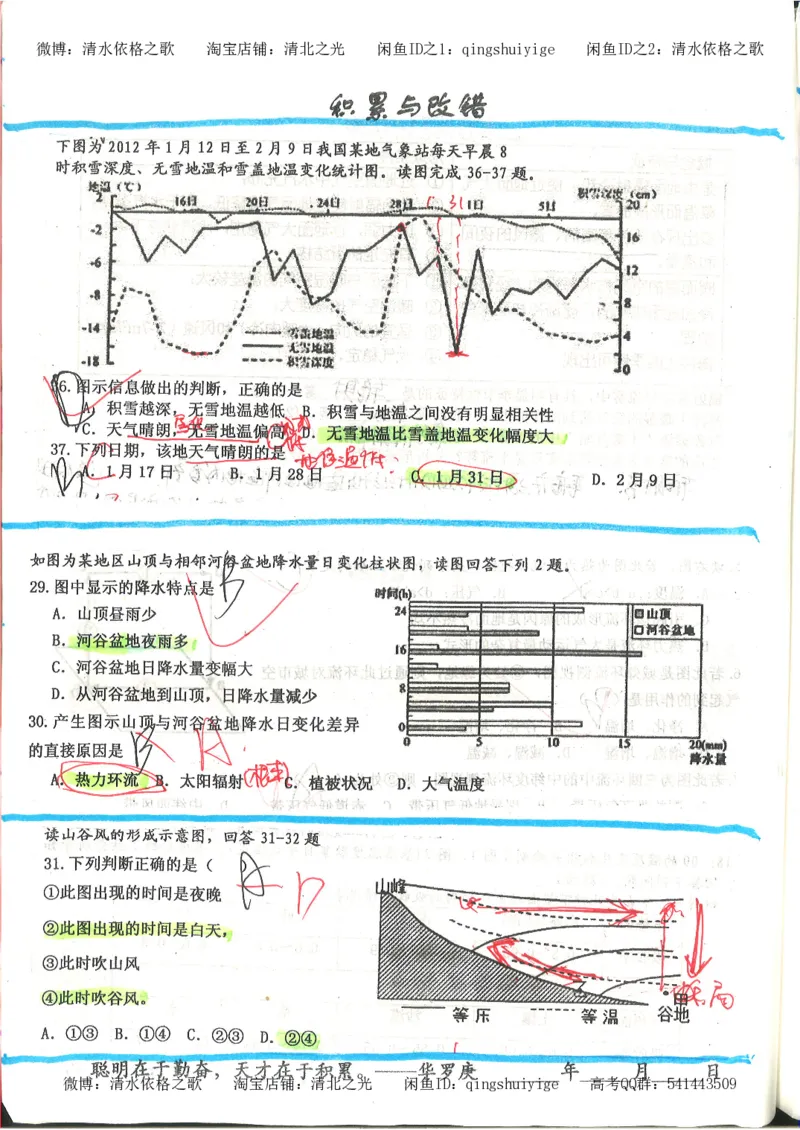 微博：清水依格之歌 淘宝店铺：清北之光 闲鱼ID之1：qingshuiyige 闲鱼ID之2：清水依格之歌
积累与改错
下图为 2012 年 1 月 12 日至 2 月 9 日我国某地气象站每天早晨 8
时积雪深度、无雪地温和雪盖地温变化统计图。读图完成 36-37 题。
地温（℃） 积雪深度（cm）
16日 20日 24日 28日 31 1日 5日
2 20
-2 16
-6 12
-8 8
-14 4
-18 0
雪盖地温
无雪地温
积雪深度
36.图示信息做出的判断，正确的是
A．积雪越深，无雪地温越低 B．积雪与地温之间没有明显相关性
C．天气晴朗，无雪地温偏高 D．无雪地温比雪盖地温变化幅度大
37.下列日期，该地天气晴朗的是
A．1月17日 B．1月28日 C．1月31日 D．2月9日
如图为某地区山顶与相邻河谷盆地降水量日变化柱状图，读图回答下列 2 题。
29.图中显示的降水特点是 B
A．山顶昼雨少
B．河谷盆地夜雨多
C．河谷盆地日降水量变幅大
D．从河谷盆地到山顶，日降水量减少
时间(h)
24
16
8
0
0 5 10 15 20(mm)
降水量
山顶
河谷盆地
30.产生图示山顶与河谷盆地降水日变化差异
的直接原因是 B A.
A．热力环流 B．太阳辐射 (根本) C．植被状况 D．大气温度
读山谷风的形成示意图，回答 31-32 题
31.下列判断正确的是（ ） A D
①此图出现的时间是夜晚
②此图出现的时间是白天，
③此时吹山风
④此时吹谷风。
A．①③ B．①④ C．②③ D．②④
山峰
谷地
等压 等温
聪明在于勤奋，天才在于积累。——华罗庚 年 月 日
微博：清水依格之歌 淘宝店铺：清北之光 闲鱼ID：qingshuiyige 高考QQ群：541443509